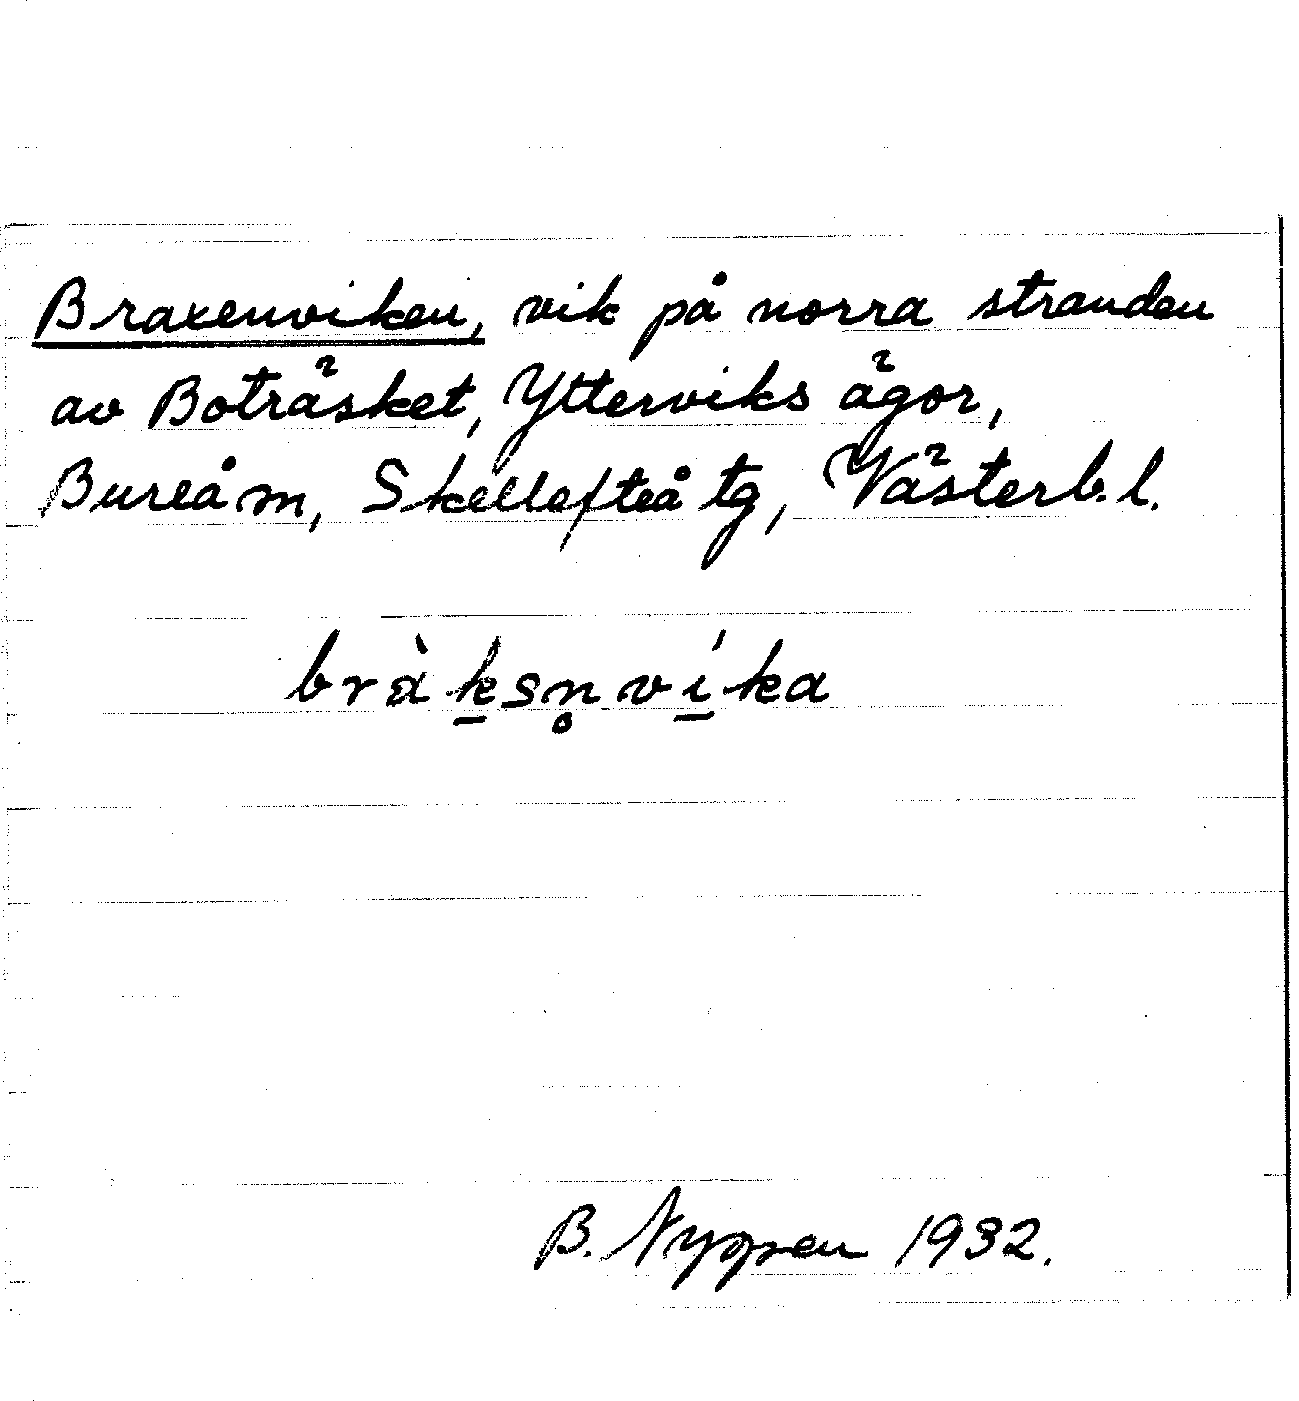 Braxenviken, vik på norra stranden
av Boträsket, Ytterviks ägor,
Bureå m, Skellefteå tg, Västerb. l.
bràk̲sn̥ví̲ka
B. Nyppen 1932.